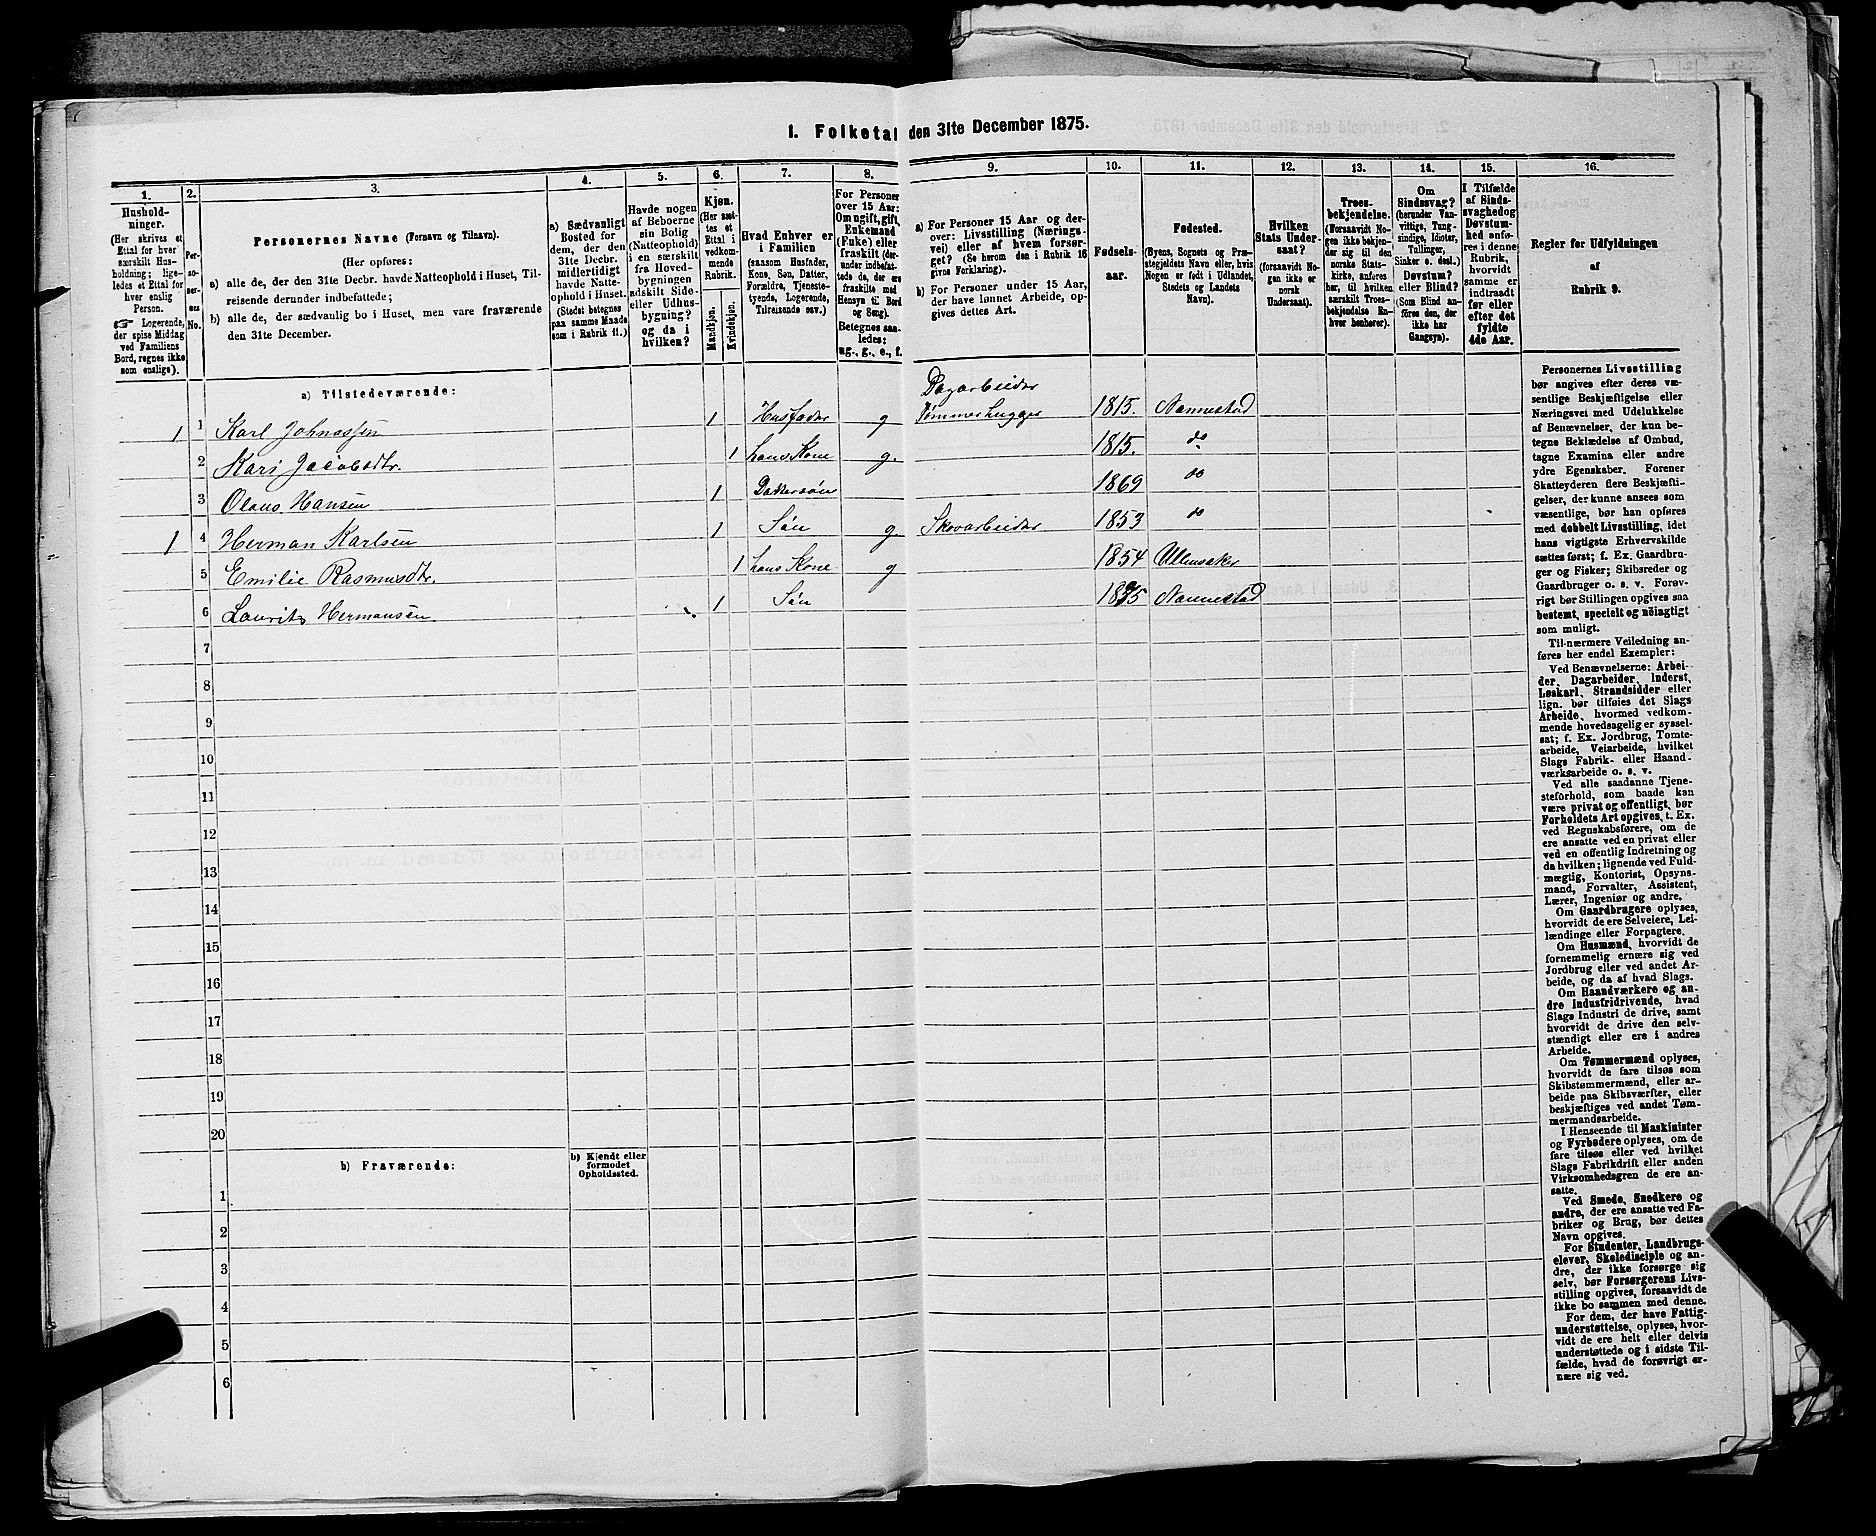 I. Folketal den 31te December 1875.
1.
Hushold-
ninger.
(Her skrives et
Ettal for hver
særskilt Hus-
holdning; lige-
ledes et Ettal for
hver enslig
Person.
☞ Logerende,
der spise Middag
ved Familiens
Bord, regnes ikke
som enslige).
2.
Per-
so-
ner-
nes
No.
3.
Personernes Navne (Fornavn og Tilnavn).
(Her opføres:
a) alle de, der den 31te Decbr. havde Natteophold i Huset, Til-
reisende derunder indbefattede;
b) alle de, der sædvanlig bo i Huset, men vare fraværende
den 31te December.
4.
a) Sædvanligt
Bosted for
dem, der den
31te Decbr.
midlertidigt
havde Natte-
ophold i Huset.
(Stedet betegnes
paa samme Maade
som i Rubrik 11.)
5.
Havde nogen
af Beboerne
sin Bolig
(Natteophold)
i en særskilt
fra Hoved-
bygningen
adskilt Side-
eller Udhus-
bygning?
og da i
hvilken?
6.
Kjøn.
(Her sæt-
tes et
Ettal i
vedkom-
mende
Rubrik.
Mandkjøn.
Kvindekjøn.
7.
Hvad Enhver er
i Familien
(saasom Husfader,
Kone, Søn, Datter,
Forældre, Tjeneste-
tyende, Logerende,
Tilreisende osv.)
8.
For Personer
over 15 Aar:
Om ugift, gift,
Enkemand
(Enke) eller
fraskilt (der-
under indbefat-
tede de, der ere
fraskilte med
Hensyn til Bord
og Seng).
Betegnes saa-
ledes:
ug., g., e., f.
9.
a) For Personer 15 Aar og der-
over: Livsstilling (Nærings-
vei) eller af hvem forsør-
get? (Se herom den i Rubrik 16
givne Forklaring).
b) For Personer under 15 Aar,
der have lønnet Arbeide, op-
gives dettes Art.
10.
Fødsels-
aar.
11.
Fødested.
(Byens, Sognets og Præ-
stegjeldets Navn eller, hvis
Nogen er født i Udlandet,
Stedets og Landets
Navn).
12.
Hvilken
Stats Under-
saat?
(forsaavidt No-
gen ikke er
norsk
Undersaat).
13.
Troes-
bekjendelse.
(Forsaavidt No-
gen ikke bekjen-
der sig til den
norske Stats-
kirke, anføres
her, til hvilken
særskilt Troes-
bekjendelse En-
hver henhører).
14.
Om
Sindssvag?
(herunder Van-
vittige, Tung-
sindige, Idioter,
Tullinger,
Sinker o. desl.)
Døvstum?
eller Blind?
(Som Blind an-
føres den, der
ikke har
Gangsyn).
15.
I Tilfælde
af Sinds-
svaghed og
Døvstum-
hed, anfø-
res i denne
Rubrik,
hvorvidt
samme er
indtraadt
før eller
efter det
fyldte
4de Aar.
16.
Regler for Udfyldningen
af
Rubrik 9.
a) Tilstedeværende:
1 1 Karl Johnassen 1 Husfader g Dagarbeider Tømmerhugger 1815. Nannestad
2 Kari Jacobsdtr. 1 hans Kone g. 1815. do
3 Olaus Hansen 1 Dattersøn 1869 do
1 4 Herman Karlsen 1 Søn g Skovarbeider 1853 do
5 Emilie Rasmusdtr. 1 hans Kone g 1854 Ullensaker
6 Laurits Hermansen 1 Søn 1875 Nannestad
7
8
9
10
11
12
13
14
15
16
17
18
19
20
b) Fraværende:
b) Kjendt eller
formodet
Opholdssted.
1
2
3
4
5
6
Personernes Livsstilling
bør angives efter deres væ-
sentlige Beskjæftigelse eller
Næringsvei med Udelukkelse
af Benævnelser, der kun be-
tegne Beklædelse af Ombud,
tagne Examina eller andre
ydre Egenskaber. Forener
Skatteyderen flere Beskjæfti-
gelser, der kunne ansees som
væsentlige, bør han opføres
med dobbelt Livsstilling, idet
hans vigtigste Erhvervskilde
sættes først; f. Ex. Gaardbru-
ger og Fisker; Skibsreder og
Gaardbruger o. s. v. Forøv-
rigt bør Stillingen opgives saa
bestemt, specielt og nøiagtigt
som muligt.
Til nærmere Veiledning an-
føres her endel Exempler:
Ved Benævnelserne: Arbei-
der, Dagarbeider, Inderst,
Løskarl, Strandsidder eller
lign. bør tilføies det Slags
Arbeide, hvormed vedkom-
mende hovedsagelig er syssel-
sat; f. Ex. Jordbrug, Tomte-
arbeide, Veiarbeide, hvilket
Slags Fabrik- eller Haand-
værksarbeide o. s. v.
Ved alle saadanne Tjene-
steforhold, som baade kan
være privat og offentligt, bør
Forholdets Art opgives, t. Ex.
ved Regnskabsførere, om de
ere ansatte ved en privat eller
ved en offentlig Indretning og
da hvilken; lignende ved Fuld-
mægtig, Kontorist, Opsyns-
mand, Forvalter, Assistent,
Lærer, Ingeniør og andre.
Om Gaardbrugere oplyses,
hvorvidt de ere Selveiere, Lei-
lændinge eller Forpagtere.
Om Husmænd, hvorvidt de
fornemmelig ernære sig ved
Jordbrug eller ved andet Ar-
beide, og da af hvad Slags.
Om Haandværkere og an-
dre Industridrivende, hvad
Slags Industri de drive, samt
hvorvidt de drive den selv-
stændigt eller ere i andres
Arbeide.
Om Tømmermænd oplyses,
hvorvidt de fare tilsøs som
Skibstømmermænd, eller ar-
beide paa Skibsværfter, eller
beskjæftiges ved andet Tøm-
mermandsarbeide.
I Henseende til Maskinister
og Fyrbødere oplyses, om de
fare tilsøs eller ved hvilket
Slags Fabrikdrift eller anden
Virksomhedsgren de ere an-
satte.
Ved Smede, Snedkere og
andre, der ere ansatte ved Fa-
briker og Brug, bør dettes
Navn opgives.
For Studenter, Landbrugs-
elever, Skoledisciple og an-
dre, der ikke forsørge sig
selv, bør Forsørgerens Livs-
stilling opgives, forsaavidt de
ikke bo sammen med denne.
For dem, der have Fattig-
understøttelse, oplyses, hvor-
vidt de ere helt eller delvis
understøttede og i sidste Til-
fælde, hvad de forøvrigt er-
nære sig ved.